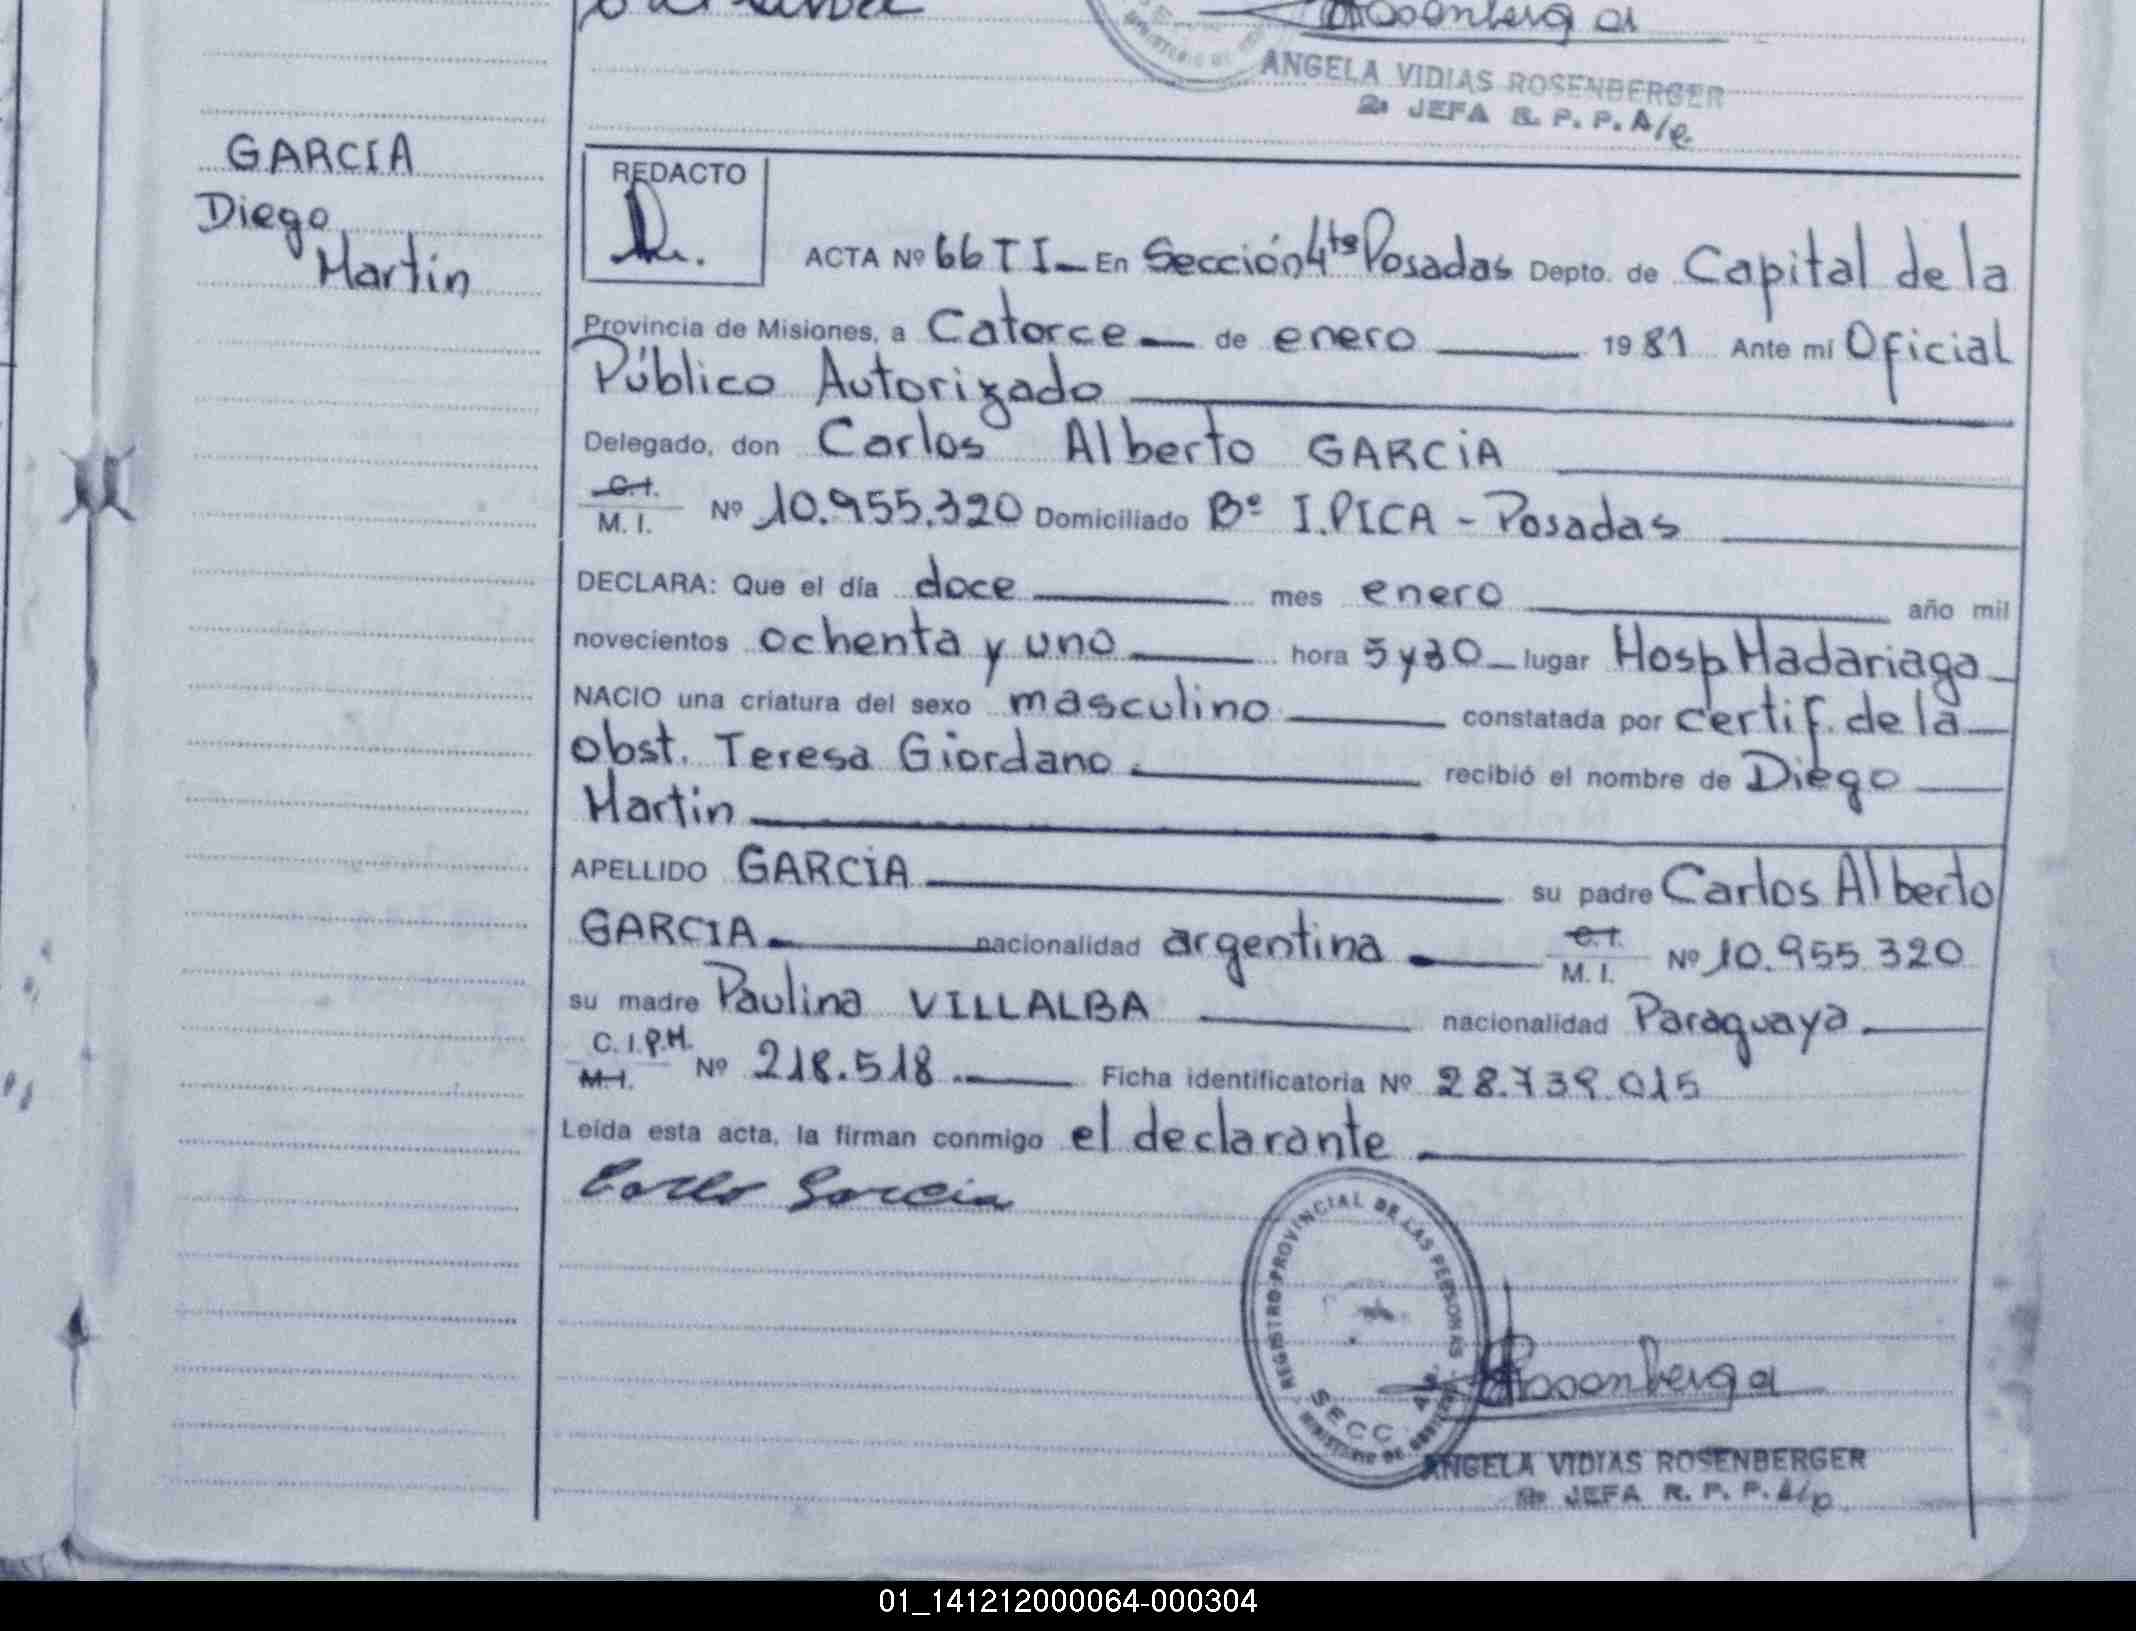 ANGELA VIDIAS ROSENBERGER
2a JEFA R. P. P. A/c.
GARCIA
Diego
Martin
REDACTO
ACTA Nº 66 T I_ En Sección 4ta Posadas Depto. de Capital de la
Provincia de Misiones, a Catorce — de enero 1981 Ante mi Oficial
Público Autorizado
Delegado, don Carlos Alberto GARCIA
C.I.
M. I. Nº 10.955.320 Domiciliado Bº I.PICA - Posadas
DECLARA: Que el día doce mes enero año mil
novecientos ochenta y uno hora 5 y 30 lugar Hosp Madariaga
NACIO una criatura del sexo masculino constatada por certif. de la
obst. Teresa Giordano. recibió el nombre de Diego
Martin
APELLIDO GARCIA su padre Carlos Alberto
GARCIA nacionalidad argentina C.I.
M. I. Nº 10.955.320
su madre Paulina VILLALBA nacionalidad Paraguaya.
C. I. P.M.
M.I. Nº 218.518. Ficha identificatoria Nº 28.739.015
Leída esta acta, la firman conmigo el declarante
Carlos Garcia
REGISTRO PROVINCIAL DE LAS PERSONAS
SECC. 4ta.
MINISTERIO DE GOBIERNO
ANGELA VIDIAS ROSENBERGER
2a JEFA R. P. P. A/c
01_141212000064-000304